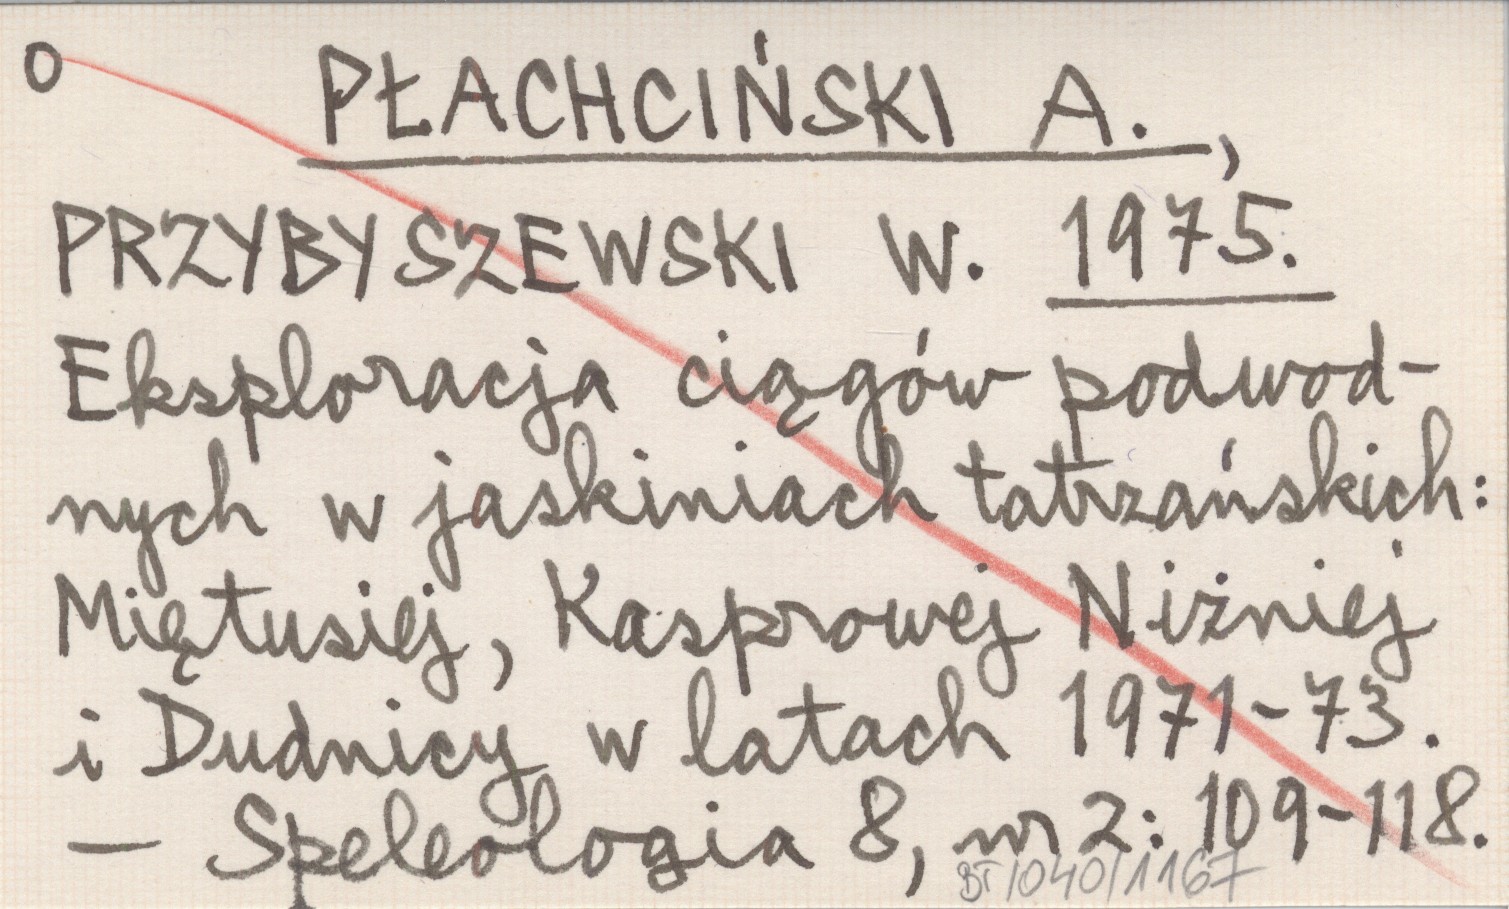 O PŁACHCIŃSKI A.,
PRZYBYSZEWSKI W. 1975.
Eksploracja ciągów podwod-
nych w jaskiniach tatrzańskich:
Miętusiej, Kasprowej Niżniej
i Dudnicy w latach 1971-73.
— Speleologia 8, nr 2: 109-118.
BT/040/1167